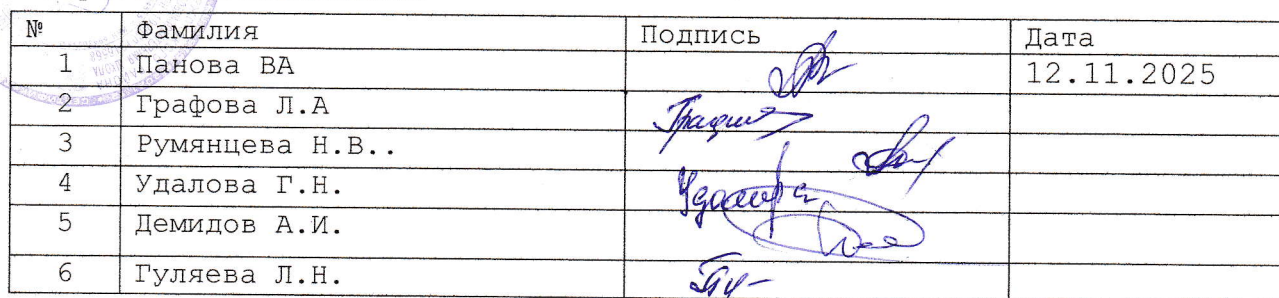 № Фамилия Подпись Дата
1 Панова ВА 12.11.2025
2 Графова Л.А
3 Румянцева Н.В..
4 Удалова Г.Н. Удалова
5 Демидов А.И.
6 Гуляева Л.Н.